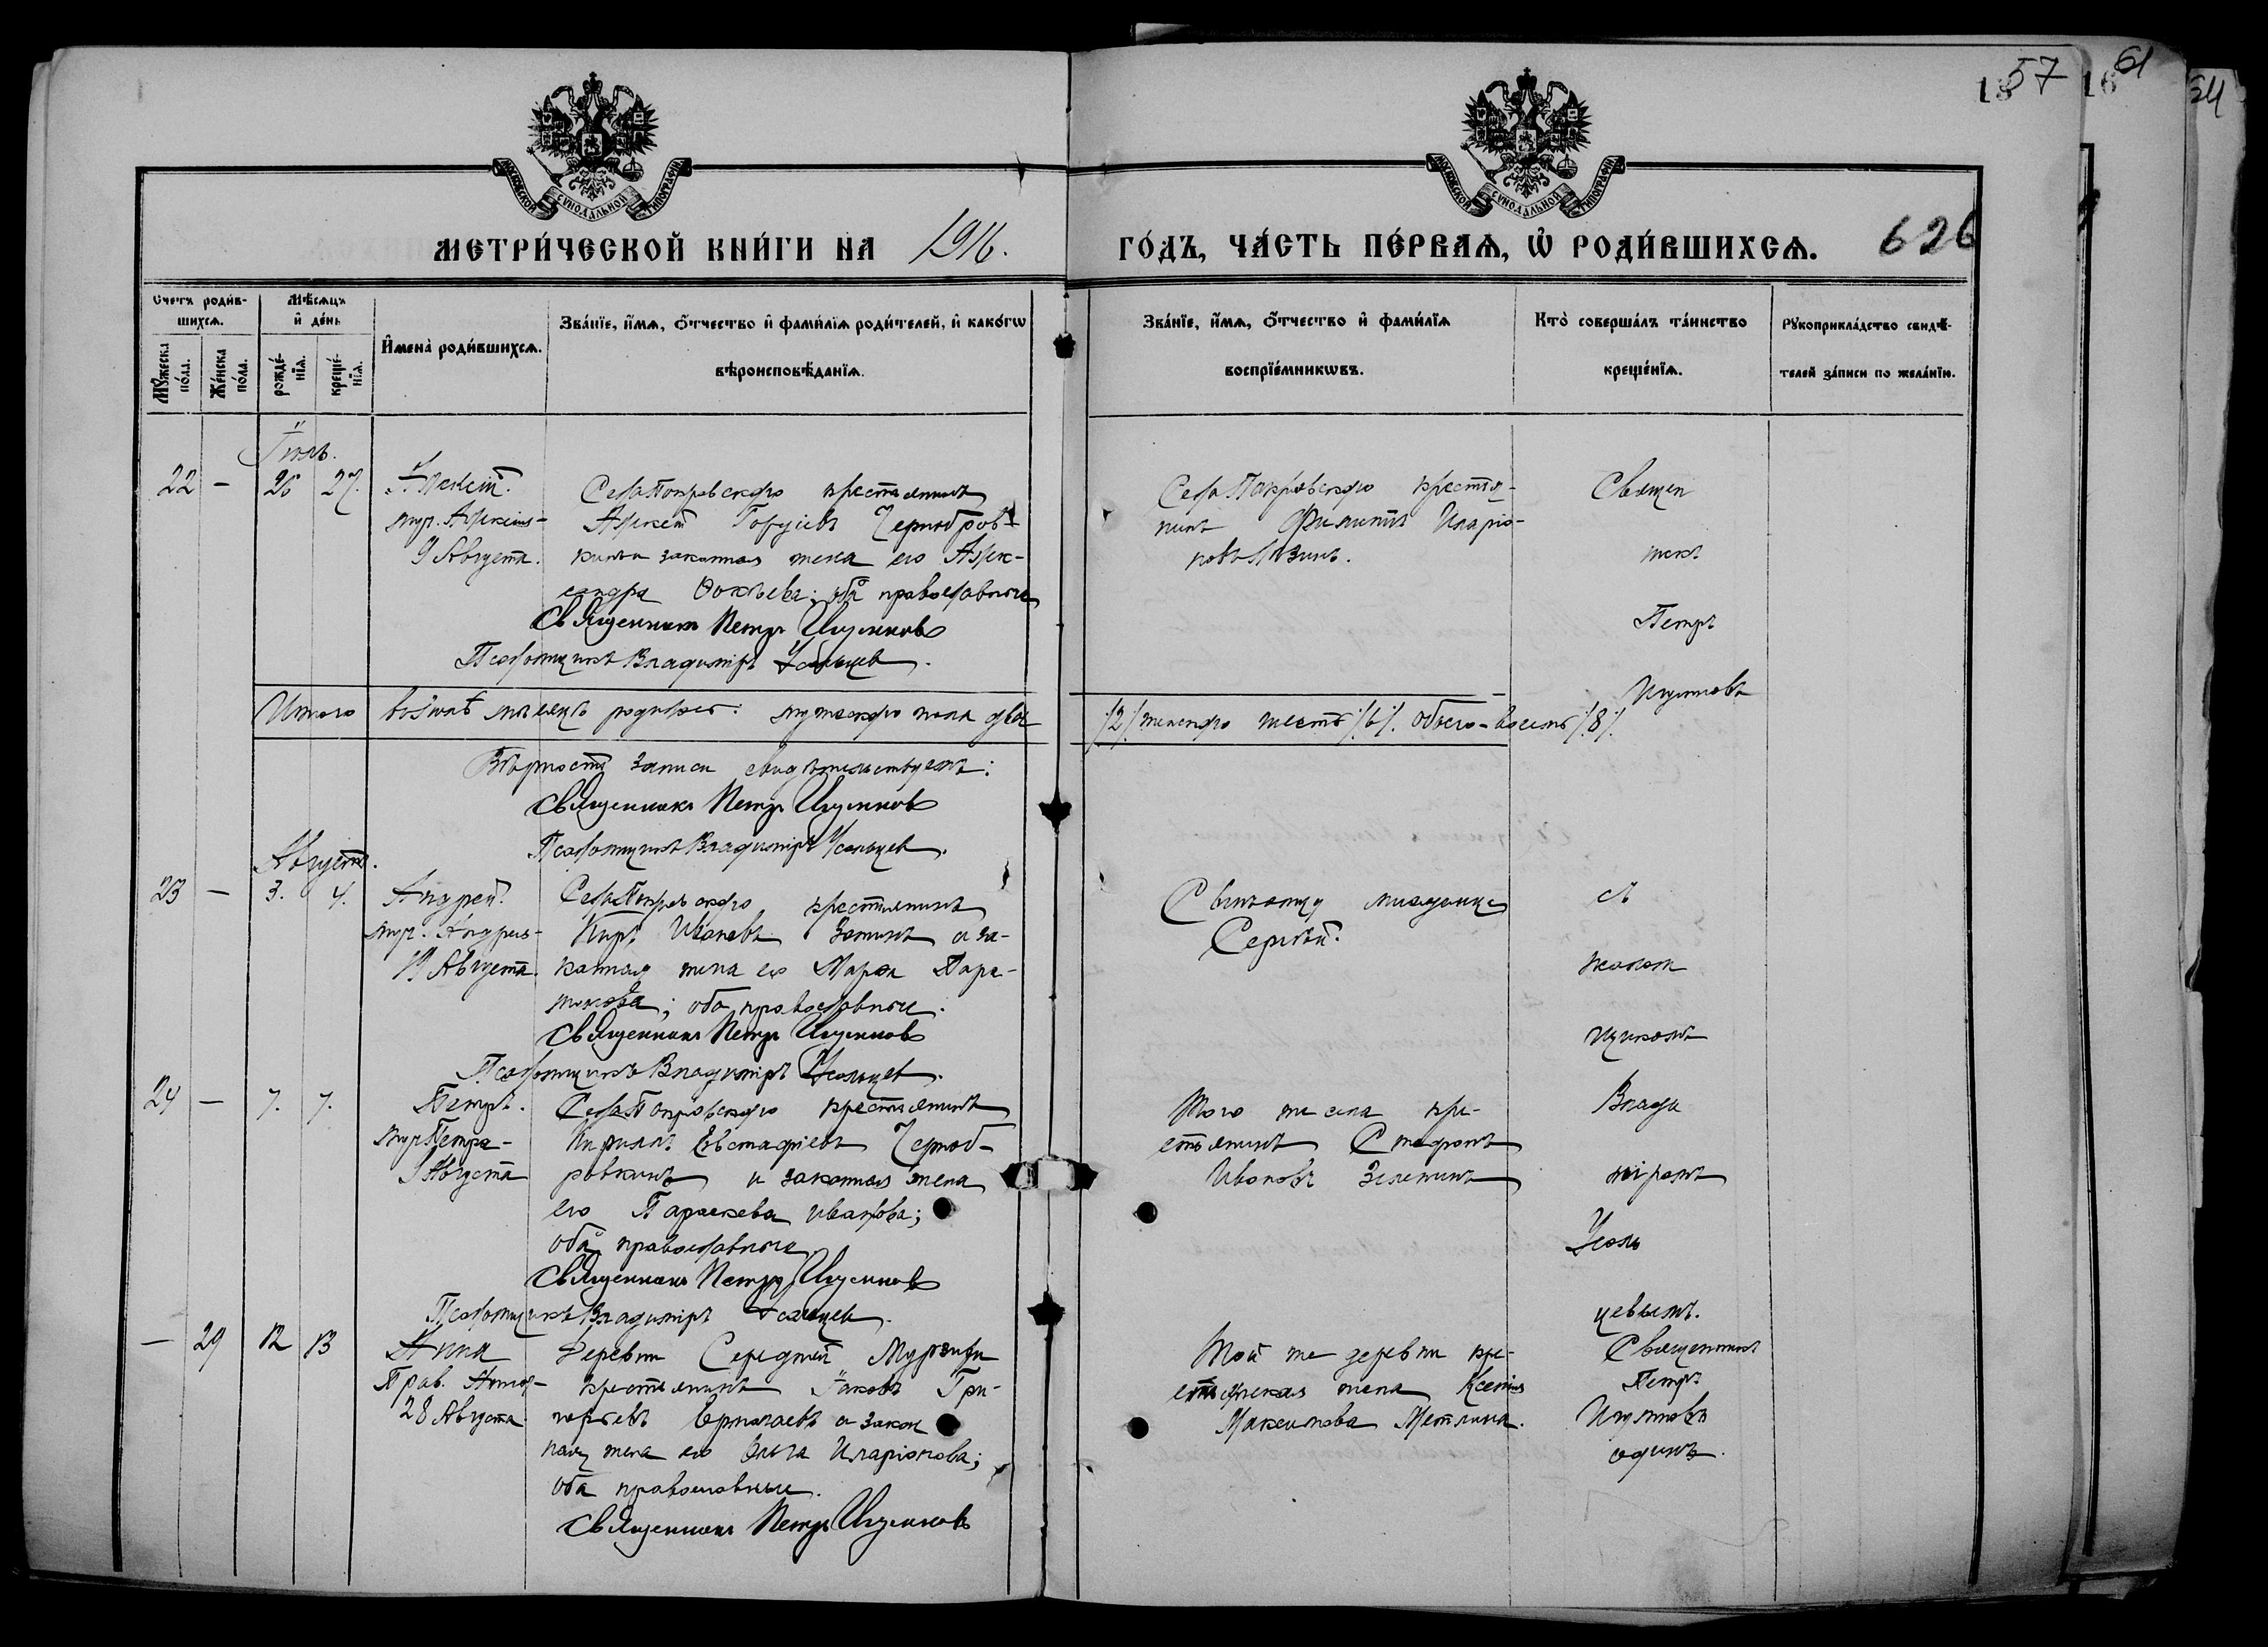 57
61
64
МОСКОВСКОЙ СѴНОДАЛЬНОЙ ТИПОГРАФІИ
МОСКОВСКОЙ СѴНОДАЛЬНОЙ ТИПОГРАФІИ
МЕТРИ́ЧЕСКОЙ КНИ́ГИ НА 1916.
ГО́ДЪ, ЧА́СТЬ ПЕ́РВАѦ, Ѽ РОДИ́ВШИХСѦ. 626
Счетъ роди́вшихсѧ.
Мꙋ́жеска по́ла.
Же́нска по́ла.
Мѣ́сѧцъ и҆ де́нь
рожде́нїѧ.
креще́нїѧ.
И҆мена̀ роди́вшихсѧ.
Зва́нїе, и҆́мѧ, ѻ҆́тчество и҆ фами́лїѧ роди́телей, и҆ како́гѡ
вѣроисповѣ́данїѧ.
Зва́нїе, и҆́мѧ, ѻ҆́тчество и҆ фами́лїѧ
воспрїе́мникѡвъ.
Кто̀ соверша́лъ та́инство
креще́нїѧ.
Рꙋкоприкла́дство свидѣ́-
телей за́писи по жела́нїю.
Іюль.
22 — 26 27. Алексѣй.
муч. Алексія-
9 Августа.
Села Покровскаго крестьянинъ
Алексѣй Чернобров-
кинъ и законная жена его Алек-
сандра Фокѣева; оба православные
Священникъ Петръ Игумновъ
Псаломщикъ Владиміръ Усольцев.
Села Покровскаго крестья-
нинъ Филиппъ Иларіо-
новъ
Священ
никъ
Петръ
Игумновъ
Итого въ іюлѣ мѣсяцѣ родилось: мужескаго пола два
/2/ женскаго шесть /6/. Обоего - восемь /8/.
Вѣрность записи свидѣтельствуемъ:
Священникъ Петръ Игумновъ
Псаломщикъ Владиміръ Усольцев.
Августъ.
23 — 3. 4. Андрей.
муч. Андрея-
19 Августа.
Села Покровскаго крестьянинъ
Киръ Ивановъ Зотинъ и за-
конная жена его Марфа Пара-
монова; оба православные.
Священникъ Петръ Игумновъ
Псаломщикъ Владиміръ Усольцев.
Сергѣй.
Съ
псалом
щикомъ
24 — 7. 7. Петръ.
муч Петра-
9 Августа
Села Покровскаго крестьянинъ
Кириллъ Евстафіевъ Черноб-
ровкинъ и законная жена
его Параскева Иванова;
оба православные.
Священникъ Петръ Игумновъ
Псаломщикъ Владиміръ Усольцев.
Того же села кре-
стьянинъ Стефанъ
Ивановъ Зеленинъ
Влади
міромъ
Усоль
цевымъ.
— 29 12 13 Анна
Прав. Анны-
28 Августа
Деревни Середней
крестьянинъ Іаковъ Гри-
горьевъ Ермолаевъ и закон
ная жена его Ольга Иларіонова;
оба православные.
Священникъ Петръ Игумновъ
Той же деревни кре-
стьянская жена Ксенія
Максимова Метлина.
Священникъ
Петръ
Игумновъ
одинъ.